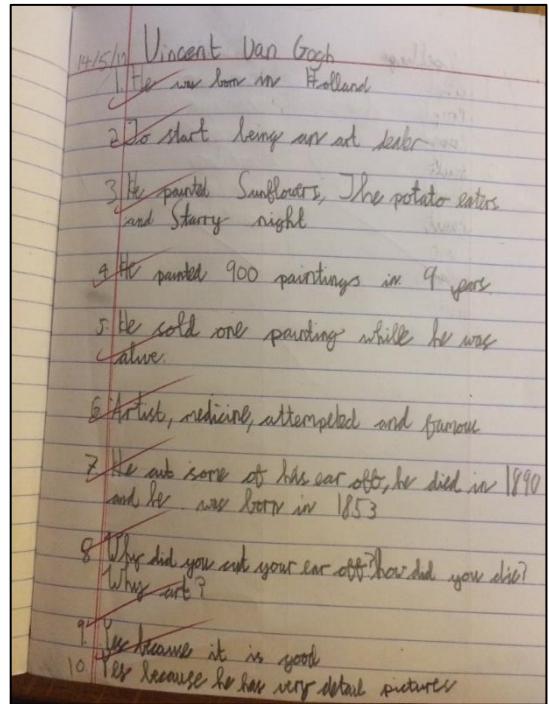 14/5/19 Vincent Van Gogh
1. He was born in Holland
2. To start being an art dealer
3. He painted Sunflowers, The potato eaters
and Starry night
4. He painted 900 paintings in 9 years.
5. He sold one painting while he was
alive.
6. Artist, medicine, attempeled and famous
7. He cut some of his ear off, he died in 1890
and he was born in 1853
8 Why did you cut your ear off? how did you die?
Why art?
9. Yes because it is good
10. Yes because he has very detail pictures